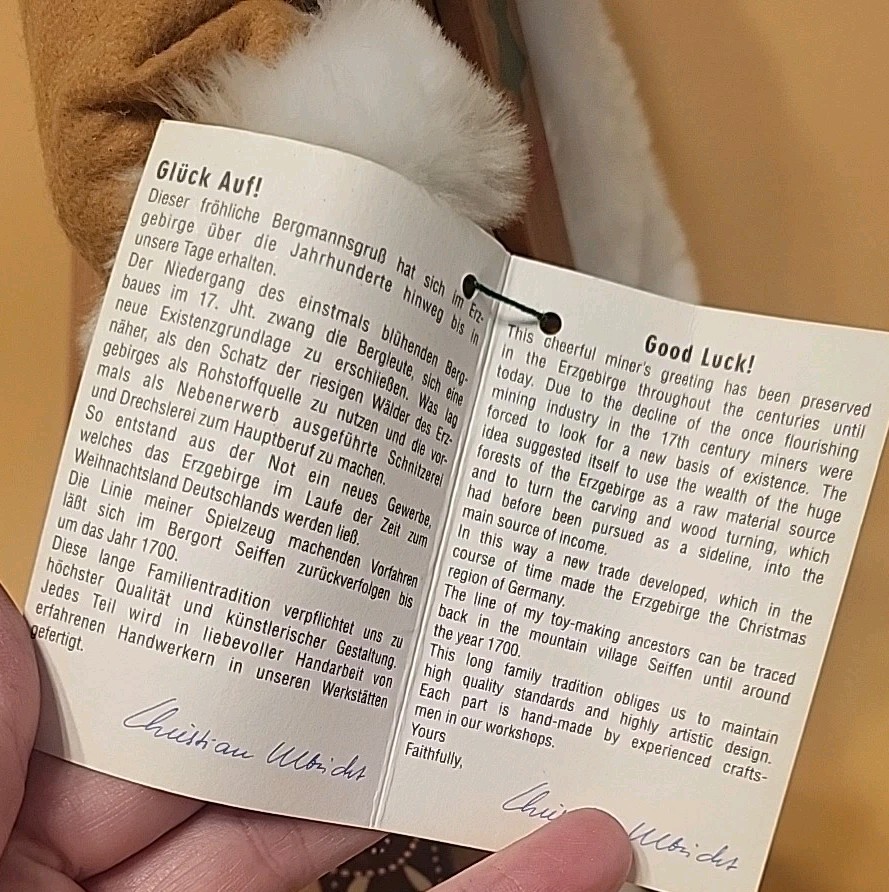 Glück Auf!
Dieser fröhliche Bergmannsgruß hat sich im Erz-
gebirge über die Jahrhunderte hinweg bis in
unsere Tage erhalten.
Der Niedergang des einstmals blühenden Berg-
baues im 17. Jht. zwang die Bergleute, sich eine
neue Existenzgrundlage zu erschließen. Was lag
näher, als den Schatz der riesigen Wälder des Erz-
gebirges als Rohstoffquelle zu nutzen und die vor-
mals als Nebenerwerb ausgeführte Schnitzerei
und Drechslerei zum Hauptberuf zu machen.
So entstand aus der Not ein neues Gewerbe,
welches das Erzgebirge im Laufe der Zeit zum
Weihnachtsland Deutschlands werden ließ.
Die Linie meiner Spielzeug machenden Vorfahren
läßt sich im Bergort Seiffen zurückverfolgen bis
um das Jahr 1700.
Diese lange Familientradition verpflichtet uns zu
höchster Qualität und künstlerischer Gestaltung.
Jedes Teil wird in liebevoller Handarbeit von
erfahrenen Handwerkern in unseren Werkstätten
gefertigt.
Christian Ulbricht
Good Luck!
This cheerful miner's greeting has been preserved
in the Erzgebirge throughout the centuries until
today. Due to the decline of the once flourishing
mining industry in the 17th century miners were
forced to look for a new basis of existence. The
idea suggested itself to use the wealth of the huge
forests of the Erzgebirge as a raw material source
and to turn the carving and wood turning, which
had before been pursued as a sideline, into the
main source of income.
In this way a new trade developed, which in the
course of time made the Erzgebirge the Christmas
region of Germany.
The line of my toy-making ancestors can be traced
back in the mountain village Seiffen until around
the year 1700.
This long family tradition obliges us to maintain
high quality standards and highly artistic design.
Each part is hand-made by experienced crafts-
men in our workshops.
Yours
Faithfully,
Ulbricht